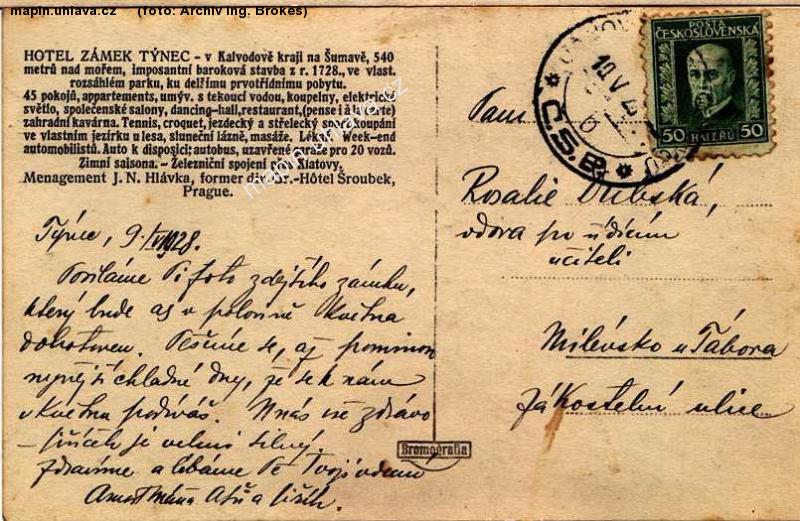 mapin.uhlava.cz (foto: Archiv ing. Brokeš)
HOTEL ZÁMEK TÝNEC - v Kalvodově kraji na Šumavě, 540
metrů nad mořem, imposantní baroková stavba z r. 1728., ve vlast.
rozsáhlém parku, ku delšímu prvotřídnímu pobytu.
45 pokojů, appartements, umýv. s tekoucí vodou, koupelny, elektrické
světlo, společenské salony, dancing-hall, restaurant, (pense i à la carte)
zahradní kavárna. Tennis, croquet, jezdecký a střelecký sport, koupání
ve vlastním jezírku u lesa, sluneční lázně, masáže. Lékař. Week-end
automobilistů. Auto k disposici; autobus, uzavřené garaže pro 20 vozů.
Zimní saisona. - Železniční spojení přes Klatovy.
Menagement J. N. Hlávka, former dir. Gr.-Hôtel Šroubek,
Prague.
mapin.uhlava.cz
POSTA
ČESKOSLOVENSKÁ
50 HALÉŘŮ 50
10 V
Č.S.R.
Týnec, 9./V 1928.
Posíláme Ti foto zdejšího zámku,
který bude as v polovině května
dohotoven. Těšíme se, až pominou
nynější chladné dny, že se k nám
v květnu podíváš. U nás vše zdrávo
je velmi silný
zdravíme a líbáme Tě Tvoji
Máňa a
Paní
Rosalie Dubská,
vdova po řídícím
učiteli
Milevsko u Tábora
Kostelní ulice
Bromografia